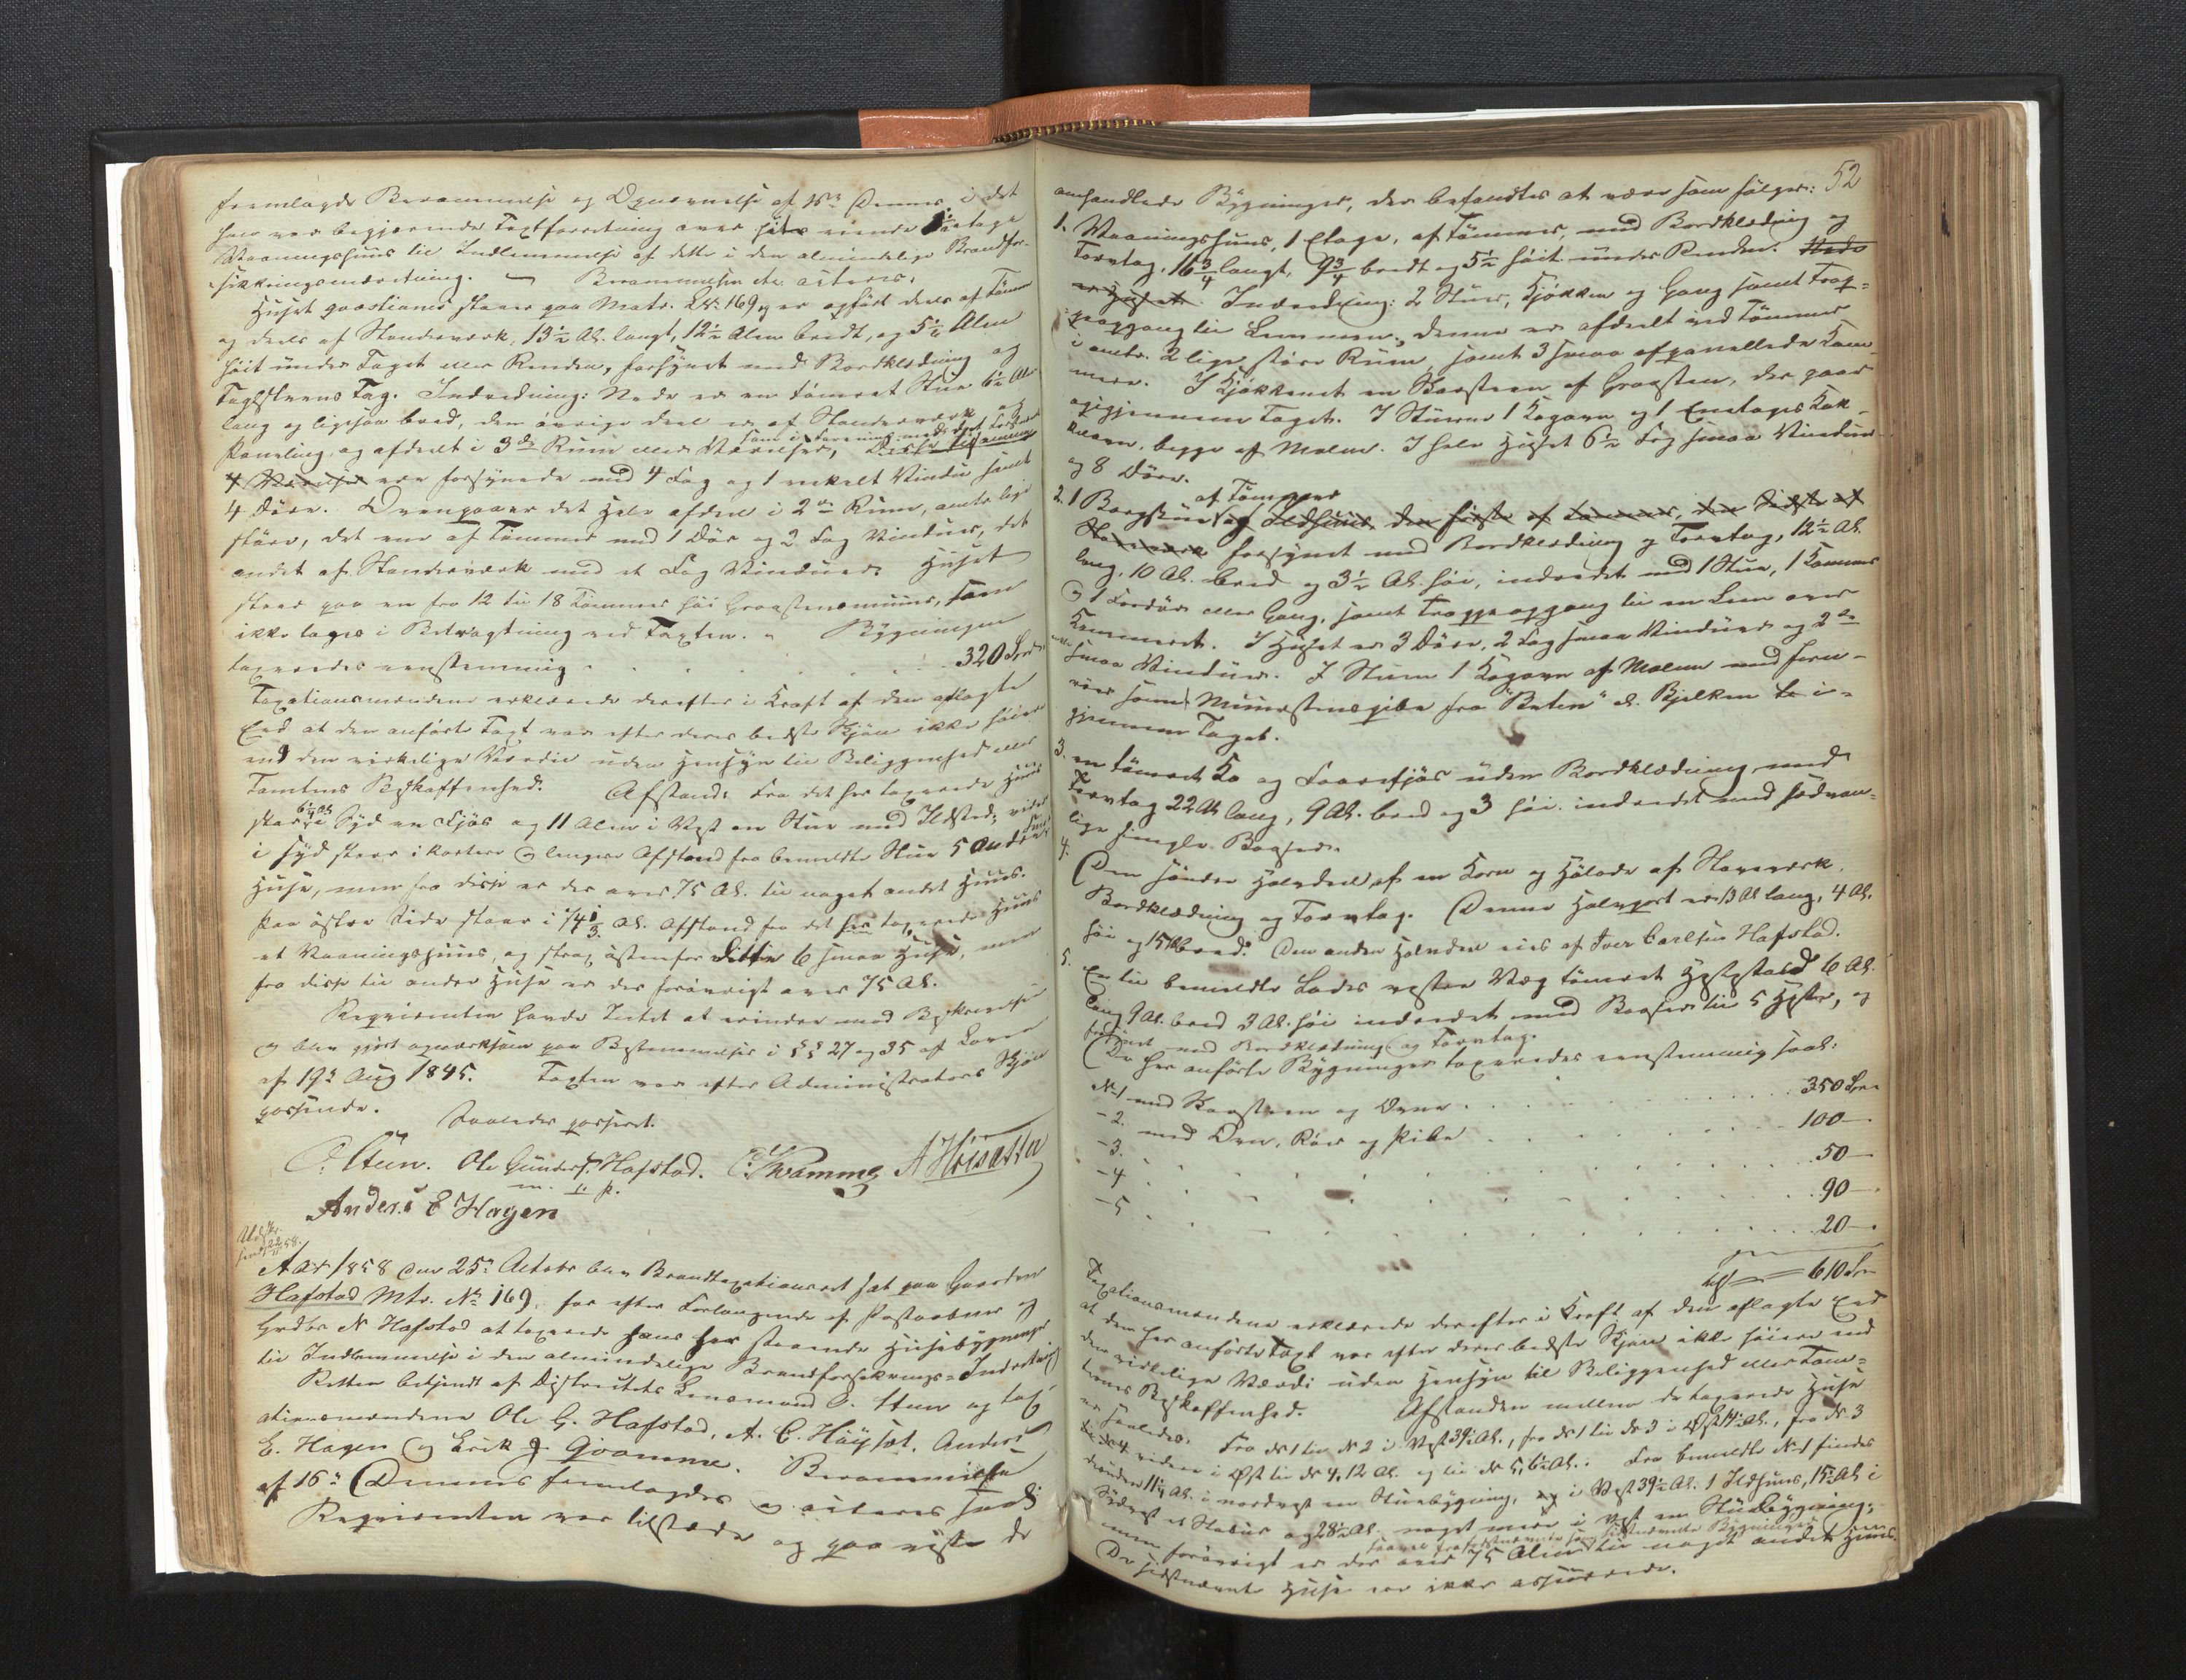 fremlagde Berammelse og Opnævnelse af 15de Dennes i det
han var begjærende Taxtforretning over sit eiende Etages
Vaaningshuus til Indlemmelse af dette i den almindelige Brandfor-
sikringsindretning. — Berammelsen etc. citeres.
Huset paastaaes staaer paa Matr. No. 169, er opført deels af Tømmer
og deels af Stænderværk, 13½ Al. langt, 12½ Alen bredt, og 5½ Alen
høit under Taget eller Renden, forsynet med Bordklædning og
Taghsteens Tag. Indredning: Nede er en tømret Stue 6½ Alen
lang og ligesaa bred, den øvrige Deel er af Stænderværk og
Paneling, og afdeelt i 3de Rum eller Værelser,
som i Forening med
4 Værelser ere forsynede med 4 Fag og 1 enkelt Vindue samt
4 Døre. Ovenpaa er det Hele afdeelt i 2de Rum, omtr. lige
større, det ene af Tømmer med 1 Dør og 2 Fag Vinduer, det
andet af Stænderværk med et Fag Vinduer. Huset
staaer paa en fra 12 til 18 Tommer høi Graasteensmuur, som
ikke tages i Betragtning ved Taxten. Bygningen
taxeredes eenstemmig . . . . . . 320 Spd.
Taxationsmændene erklærede derefter i Kraft af den aflagte
Eed at den anførte Taxt var efter deres bedste Skjøn ikke høiere
end den virkelige Værdie uden Hensyn til Beliggenhed eller
Tomtens Beskaffenhed. Afstand: Fra det her taxerede Huus
staaer i Syd en Fjøs og 11 Alen i Vest en Stue med Ildsted, videre
i Syd staaer i kortere og længere Afstand fra bemeldte Stue 5 andre
Huse, men fra disse er der over 75 Al. til noget andet Huus.
Paa østre Side staaer i 14⅓ Al. Afstand fra det her taxerede Huus
et Vaaningshuus, og strax østenfor dette 6 smaa Huse, men
fra disse til andre Huse er der forøvrigt over 75 Al.
Reqvirenten havde Intet at erindre mod Beskrivelsen
og blev gjort opmærksom paa Bestemmelser i §§ 27 og 35 af Loven
af 19de Aug 1845. Taxten var efter Administrators Skjøn
passende. Saaledes passeret.
O. Stuen. Ole Gunders. Hafstad. E. Kvamme A Höisæth
m. f. p.
Anders E Hagen
Aar 1858 den 25de October blev Brandtaxationsret sat paa Gaarden
Hafstad Mtr. No 169, for efter Forlangende af Postaabner og
Grdbr. N Hafstad at taxerede hans her staaende Huusbygninger
til Indlemmelse i den almindelige Brandforsikrings-Indretning
Retten betjendt af Distriktets Lensmand O. Stuen og tax-
ationsmændene Ole G. Hafstad, A. C. Høysæt, Anders
E. Hagen og Erik J. Qvamme. Berammelsen
af 16de Dennes fremlagdes og citeres saal:
Reqvirenten var tilstæde og paaviste de
52
omhandlede Bygninger, der befandtes at være som følger:
1. Vaaningshuus, 1 Etage, af Tømmer, med Bordklædning og
Torvtag, 16¾ langt, 9¾ bredt og 5½ høit under Renden. Nede
er Huset Indredning: 2 Stuer, Kjøkken og Gang samt Trap-
peopgang til Lemmen, denne er afdeelt ved Tømmer
i omtr. 2 lige store Rum, samt 3 smaa afpanellede Kam-
mere. I Kjøkkenet en Skorsteen af Graasteen, der gaar
opigjennem Taget. I Stuerne 1 Kogovn og 1 Eenetages Kak-
kelovn, begge af Malm. I hele Huset 6½ Fag smaa Vinduer
og 8 Døre.
2. 1 Borgstue af Tømmer og Ildhuus, den første af Tømmer, den Sidste af
Stavværk forsynet med Bordklædning og Torvtag, 12½ Al.
lang, 10 Al. bred og 3½ Al. høi, indredet med 1 Stue, 1 Kammer
og 1 Fordør eller Gang, samt Trappeopgang til en Lem over
Kammeret. I Huset er 3 Døre, 2 Fag smaa Vinduer og 2de
smaa Vinduer. I Stuen 1 Kogovn af Malm med Jern-
røer samt Muursteenspibe fra "Beten" d. Bjelken i-
gjennem Taget.
3. en tømret Ko og Faarefjøs uden Bordklædning med
Torvtag 22 Al. lang, 9 Al. bred og 3 høi. indredet med sædvan-
lige simple Baaser.
4. Den søndre Halvdeel af en Korn og Hølade af Stavværk.
Bordklædning og Torvtag. Denne Halvpart er 13 Al. lang, 4 Al.
høi og 15 Al. bred. Den anden Halvdeel eies af Iver Carlsen Hafstad.
5. En til bemeldte Lades vestre Væg tømret Hestestald 6 Al.
lang 9 Al. bred 3 Al. høi indredet med Baaser til 5 Heste, og
forsynet med Bordklædning og Torvtag.
De her anførte Bygninger taxeredes eenstemmig saal:
No 1 med Skorsteen og Ovne . . . . . . 350 Spd.
– 2. med Ovn, Rør og Pibe . . . . . . 100 –
– 3. . . . . . . 50 –
– 4 . . . . . . 90 –
– 5 . . . . . . 20 –
610 Spd.
Taxationsmændene erklærede derefter i Kraft af den aflagte Eed
at den her anførte Taxt var efter deres bedste Skjøn ikke høiere end
den virkelige Værdi uden Hensyn til Beliggenhed eller Tom-
ternes Beskaffenhed. Afstanden mellem de taxerede Huse
er saaledes: Fra No 1 til No 2 i Vest 39½ Al., fra No 1 til No 3 i Øst 14½ Al., fra No 3
videre i Øst til No 4, 12 Al. og til No 5, 6½ Al. Fra bemeldte No 1 findes
11¼ Al. i nordvest en Stuebygning, og i Vest 39½ Al. 1 Ildhuus, 15½ Al. i
Sydvest et Stabur og 28½ Al. noget mere i Vest en Stuebygning,
saavel fra sidstnævnte som førstnævnte Bygninger
men forøvrigt er der over 75 Alen til noget andet Huus.
De sidstnævnte Huse ere ikke assurerede.